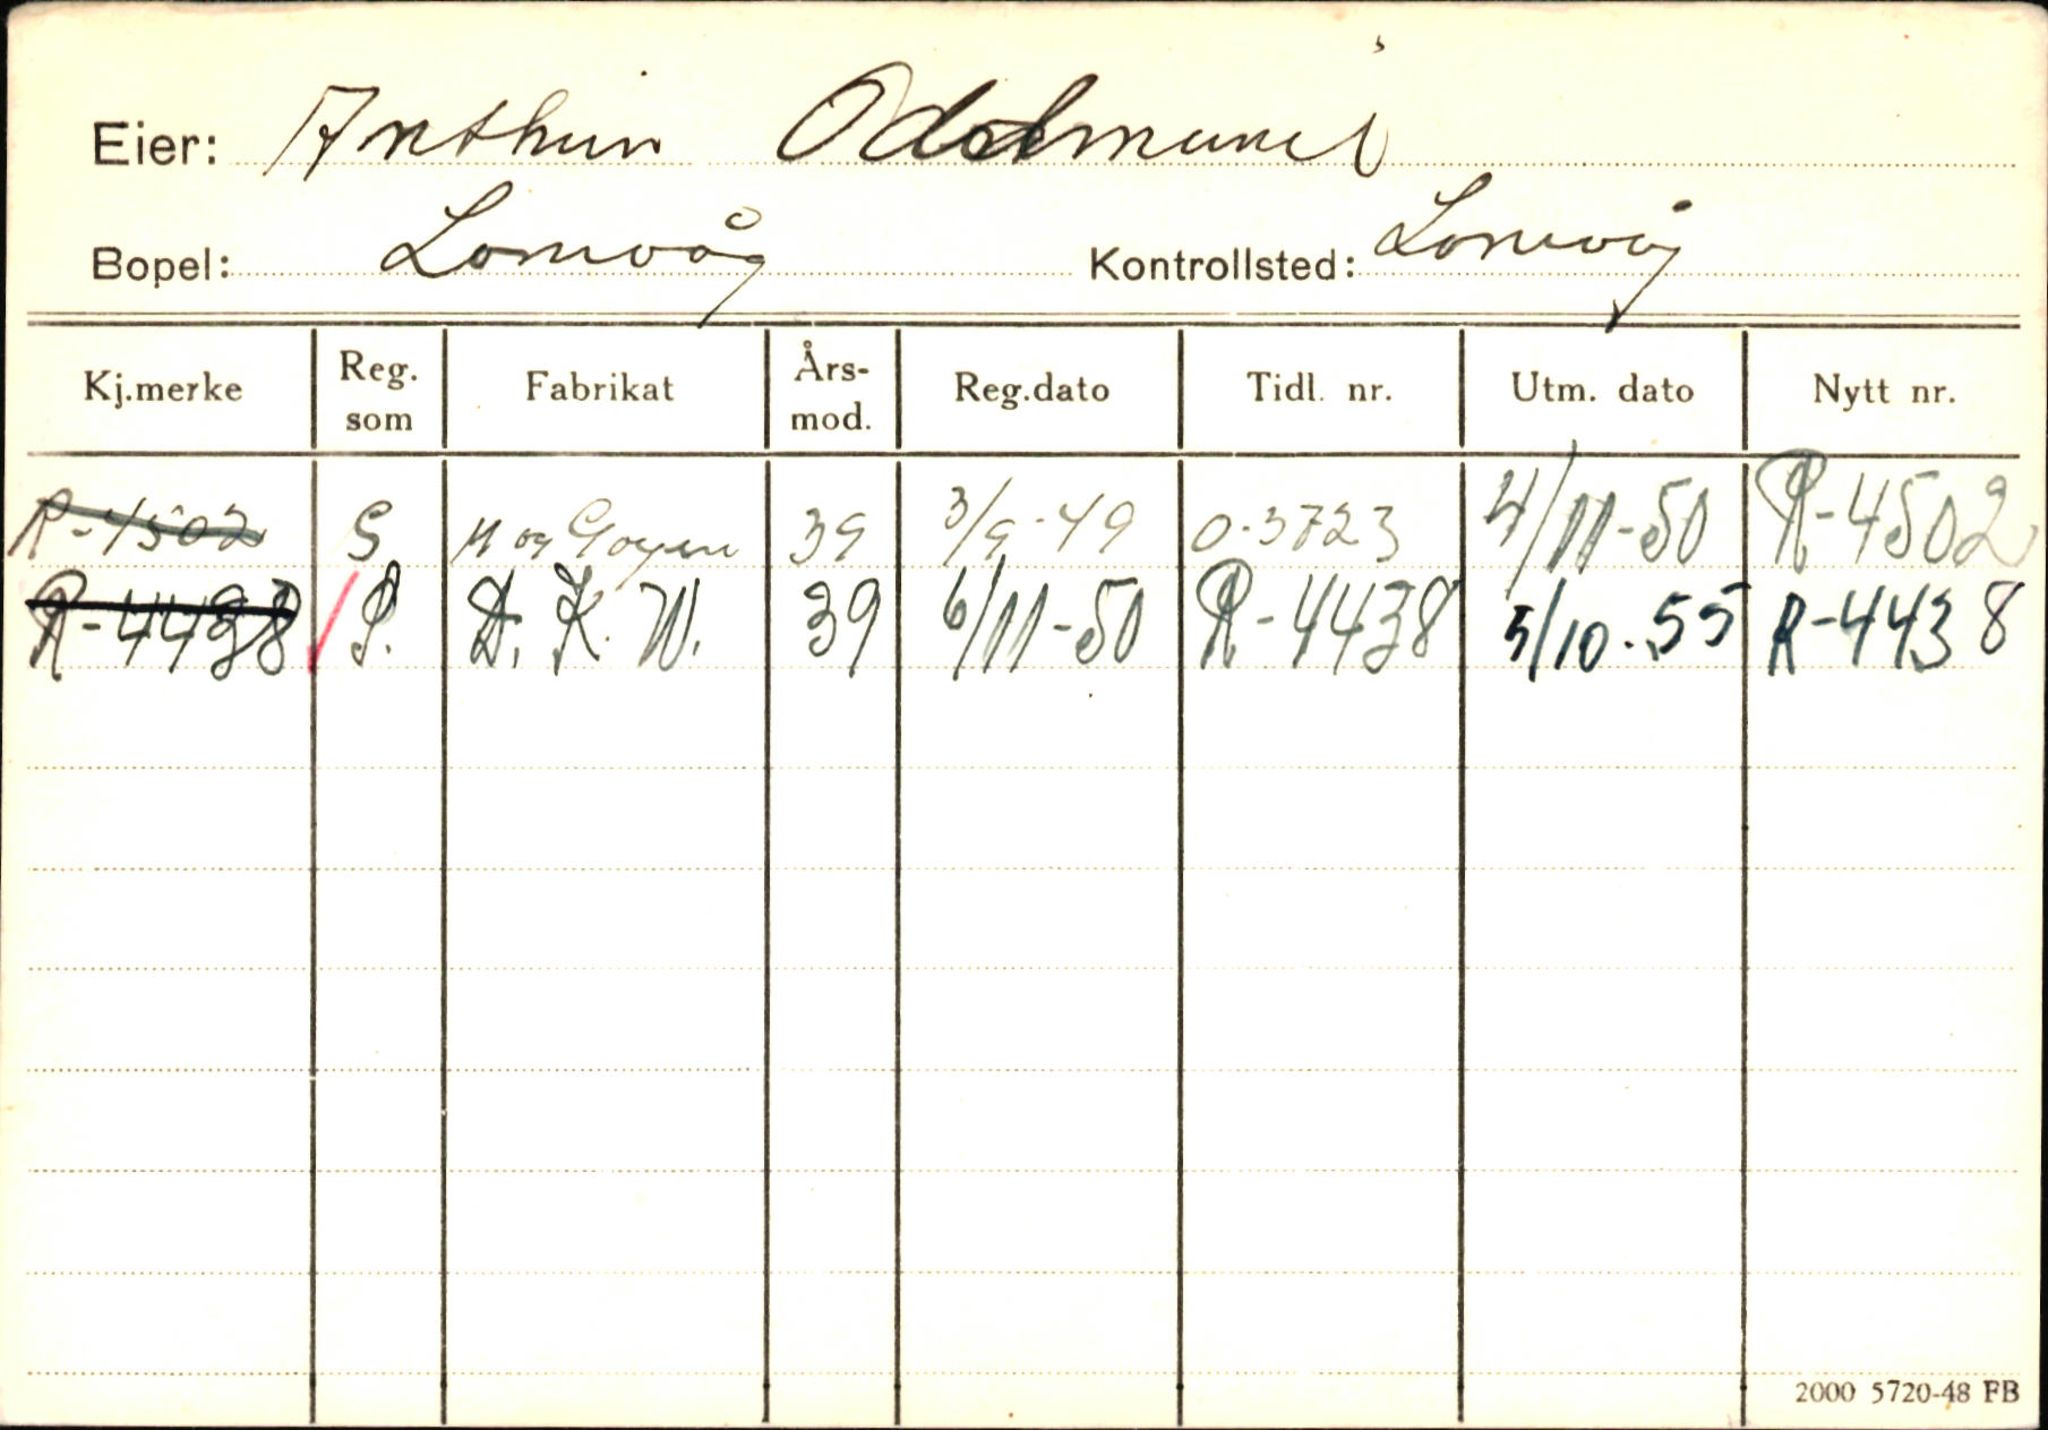 Eier: Arthur Oddmund
Bopel: Lomvåg Kontrollsted: Lomvåg
Kj.merke Reg. som Fabrikat Års- mod. Reg.dato Tidl. nr. Utm. dato Nytt nr.
R-4502 S 39 3/9-49 O-3723 4/11-50 R-4502
R-4438 P. D.K.W. 39 6/11-50 R-4438 5/10.55 R-4438
2000 5720-48 FB